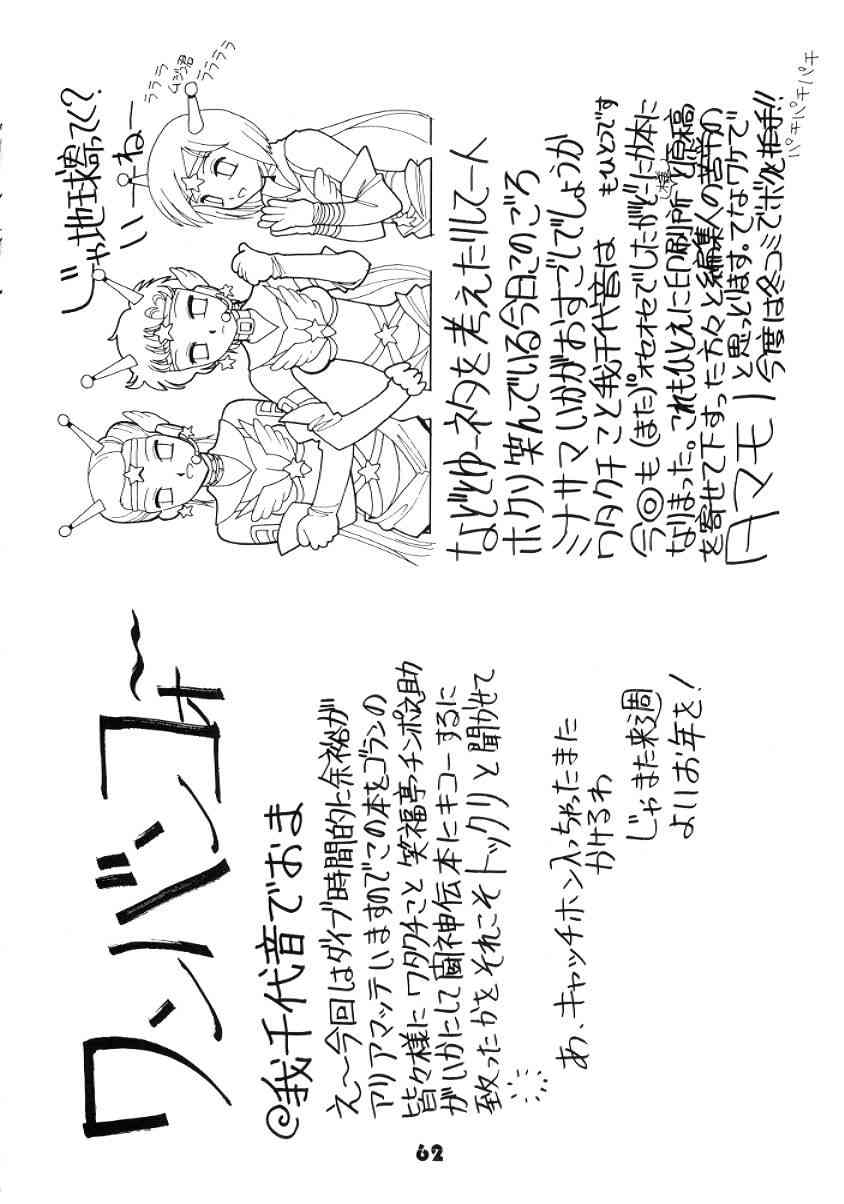 ワンバンコォ〜
@我千代音でおま
え〜今回はダイブ時間的に余裕が
アリアマッテいますのでこの本をゴランの
皆々様にワタクチこと笑福亭チンポ之助
がいかにして闘神伝本にキコーするに
致ったかをそれこそトックリと聞かせて
あ、キャッチホン入っちゃったまた
かけるわ
じゃまた来週
よいお年を!
じゃ地球寄ってく?
いーねー
ラララ
ムジン君
ララララ
などとゆーネタを考えたりして一人
ホクソ笑んでいる今日このごろ
ミナサマいかがおすごしでしょうか
ワタクチこと我千代音は もひとつです
今回も(また)オセオセでしたがどーにか本に
なりまった。これもひとえに印刷所様と原稿
を寄せて下すった方々と編集人の苦労の
タマモノと思っとります。てなワケで
今度は冬コミでボクと握手!!
パチパチパチ
62